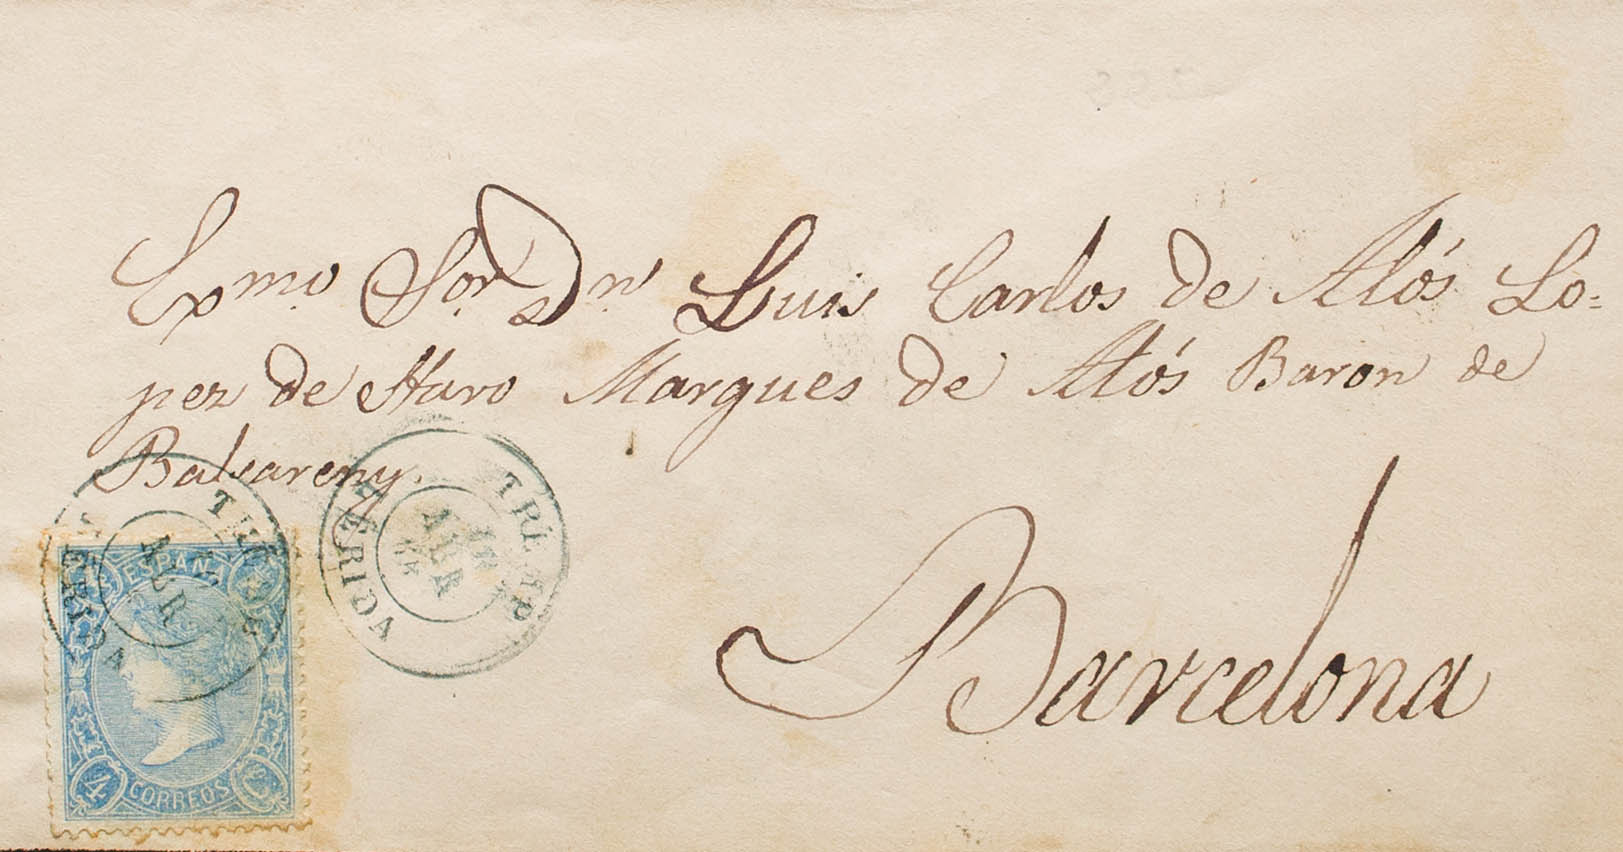 Exmo. Sor. Dn. Luis Carlos de Alós Lo=
pez de Haro Marques de Alós Baron de
Balsareny.
Barcelona
TREMP
ABR
LERIDA
TREMP
ABR
LERIDA
ESPAÑA
4 CORREOS Cs